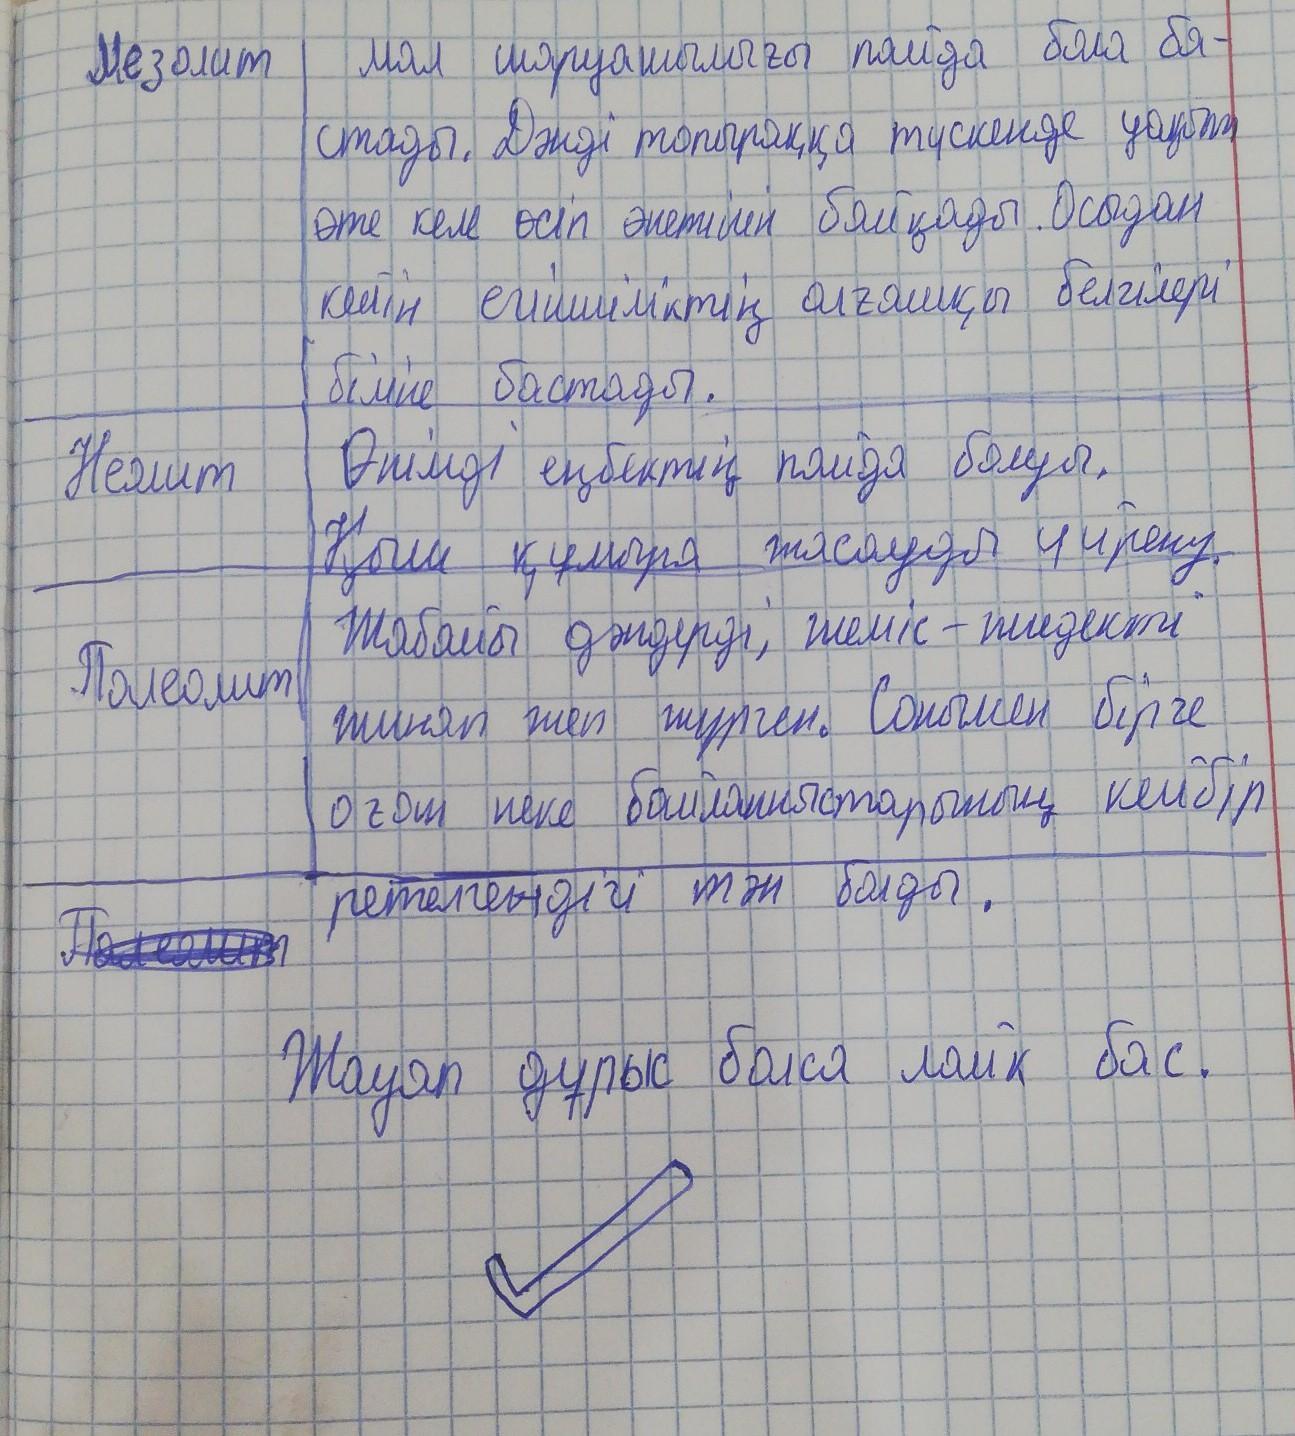 Мезолит мал шаруашылығы пайда бола ба-
стады. Дәнді топыраққа түскенде уақыт
өте келе өсіп өнетінін байқады. Осыдан
кейін егіншіліктің алғашқы белгілері
біліне бастады.
Неолит Өнімді еңбектің пайда болуы.
Қыш құмыра жасауды үйрену.
Жабайы дәндерді, жеміс-жидекті
Палеолит
жинап жеп жүрген. Сонымен бірге
оғаш неке байланыстарының кейбір
реттелгендігі тән болды.
Жауап дұрыс болса лайк бас.